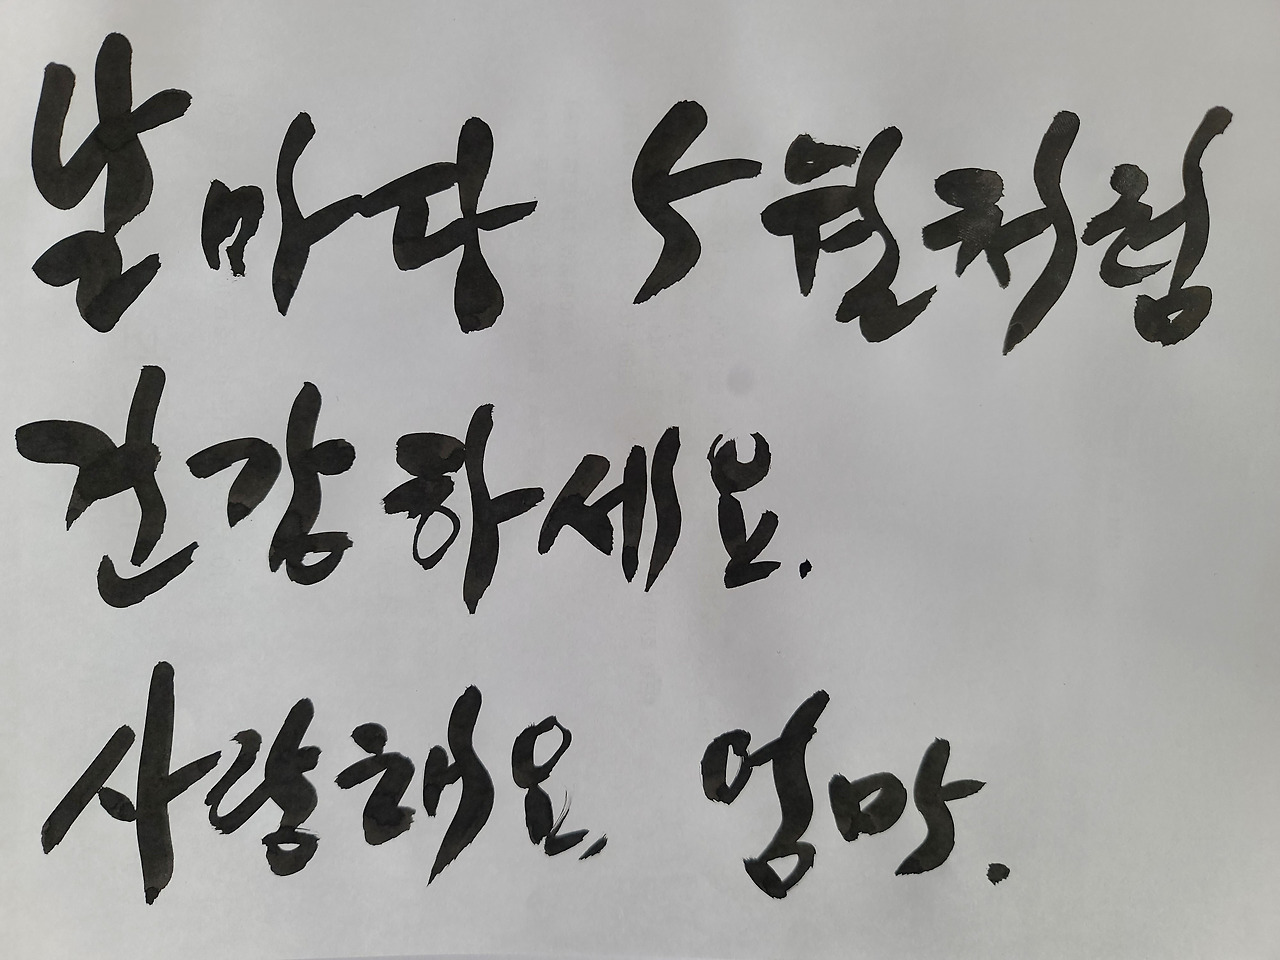 날마다 5월처럼
건강하세요.
사랑해요, 엄마.